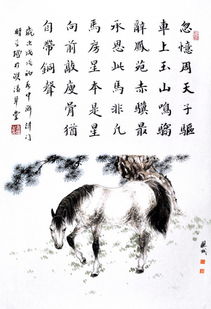 忽憶周天子驅
車上玉山鳴騶
辭鳳苑赤驥最
承恩此馬非凡
馬房星本是星
向前敲瘦骨猶
自帶銅聲